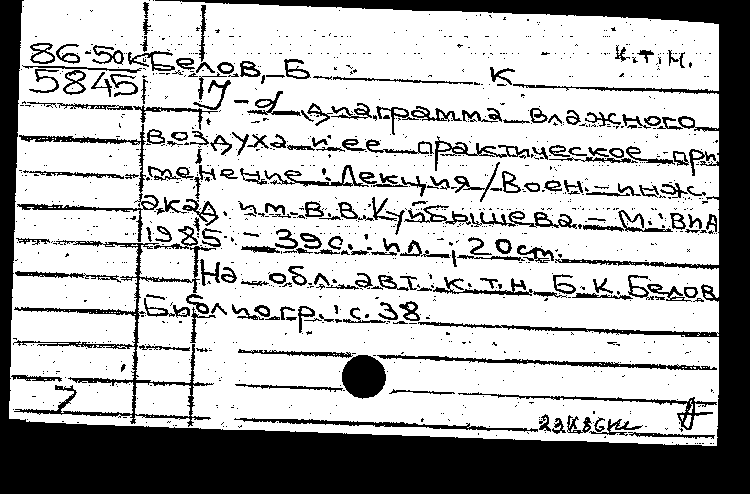 к.т.н.
86-50к Белов, Б К
5845 J-d диаграмма влажного
воздуха и ее практическое при
менение : Лекция / Воен.-инж.
акад. им. В.В. Куйбышева – М. : ВИА
1985. – 39 с. : ил. ; 20 см.
На обл. авт.: к.т.н. Б.К. Белов
Библиогр.: с. 38.
7